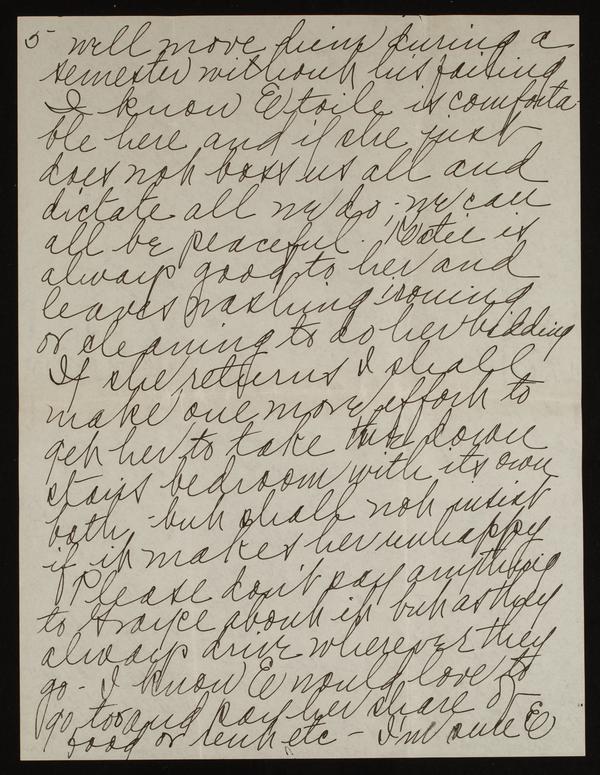 5 will move him during a
semester without his failing
I know Etoile is comforta-
ble here and if she just
does not boss us all and
dictate all we do - we can
all be peaceful. Katie is
always good to her and
leaves washing ironing
or cleaning to do her bidding
If she returns I shall
make one more effort to
get her to take the down
stairs bedroom with its own
bath - but shall not insist
if it makes her unhappy
Please don't say anything
to Grayce about it but as they
always drive wherever they
go - I know E would love to
go too and pay her share of
food or rent etc - I'm sure E